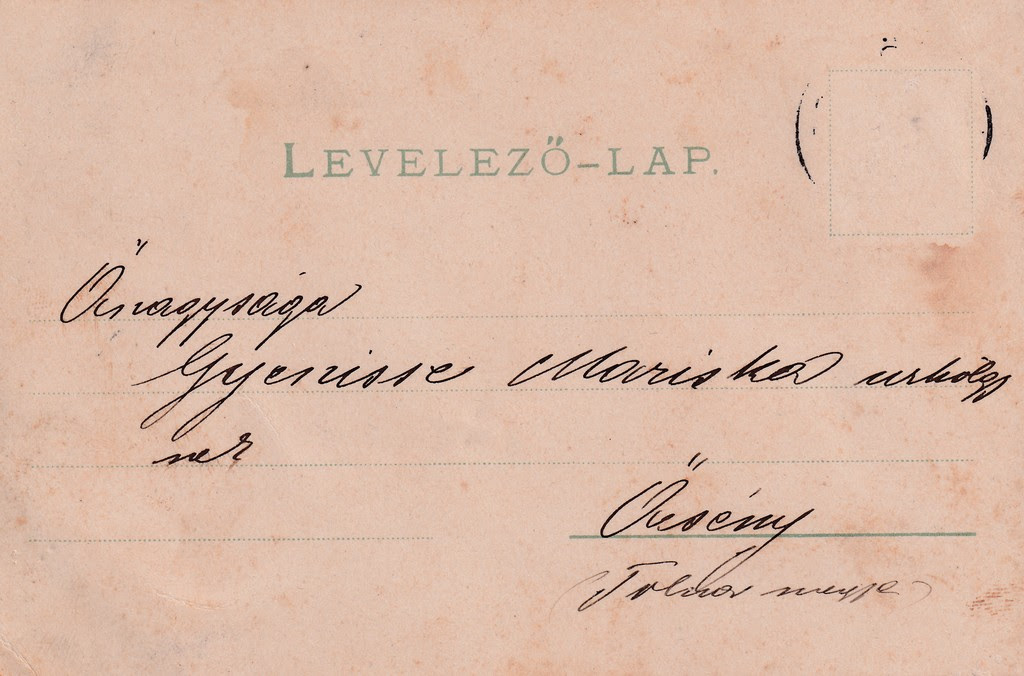 LEVELEZŐ-LAP.
Őnagysága
Gyenisse Mariska urhölgy
nek
Őcsény
Tolna megye